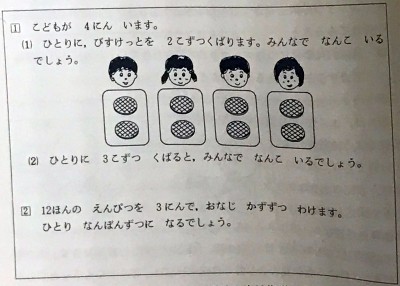 1 こどもが 4にん います。
(1) ひとりに,びすけっとを 2こずつくばります。みんなで なんこ いる
でしょう。
(2) ひとりに 3こずつ くばると,みんなで なんこ いるでしょう。
2 12ほんの えんぴつを 3にんで,おなじ かずずつ わけます。
ひとり なんぼんずつに なるでしょう。